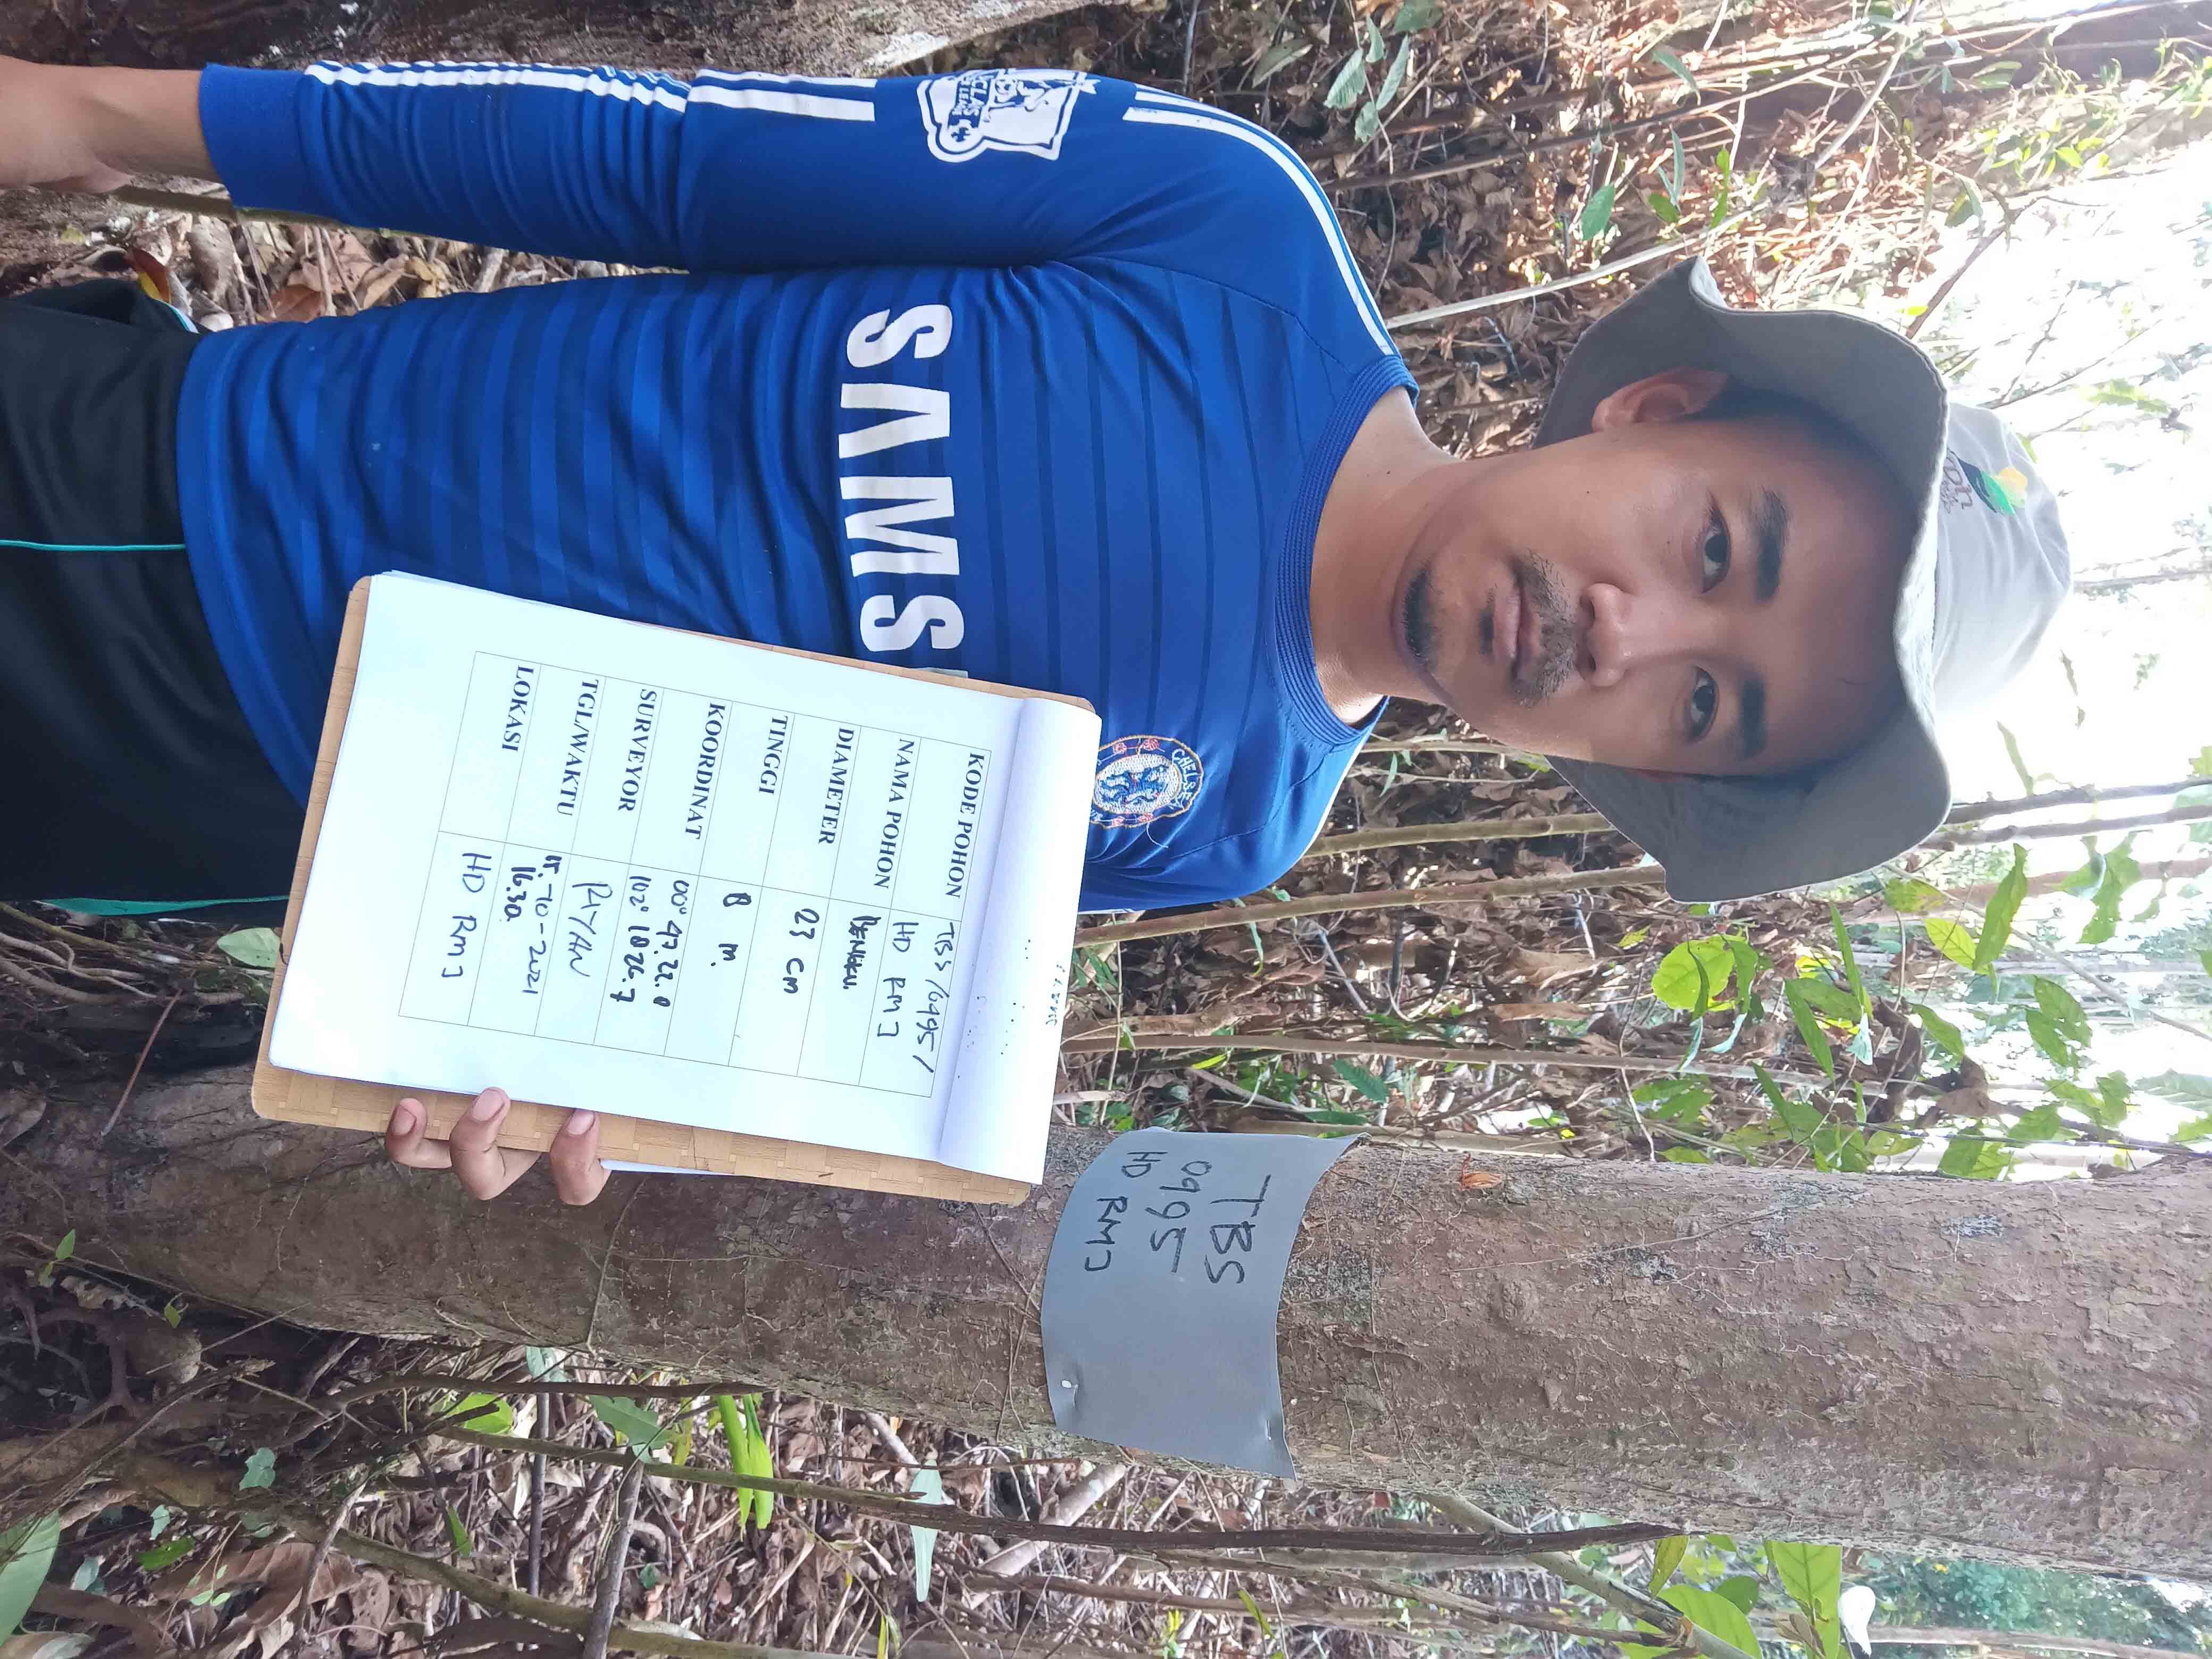 CHELSEA
SAMS
KODE POHON TBS/0995/
HD RMJ
NAMA POHON
DIAMETER 23 cm
TINGGI 8 m.
KOORDINAT 00° 47. 22. 0
102° 18 26. 7
SURVEYOR RIYAN
TGL/WAKTU 15-10-2021
16.30.
LOKASI HD RMJ
TBS
0995
HD RMJ